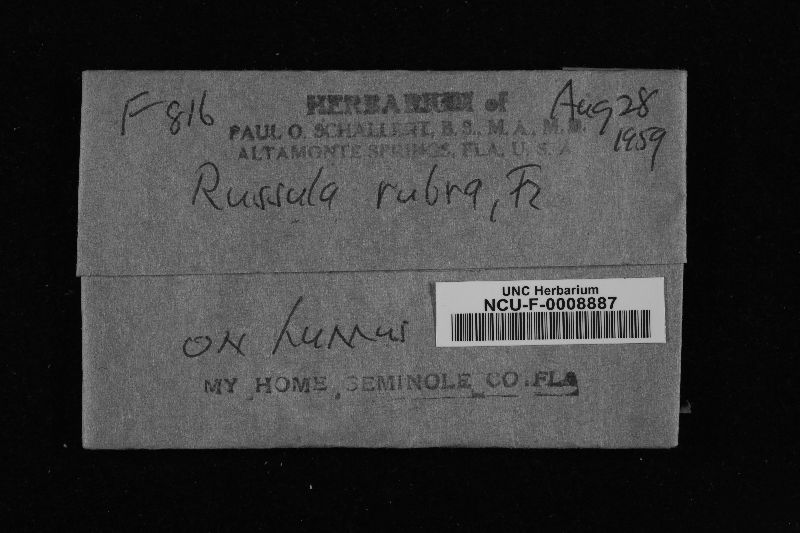 F 816
HERBARIUM of
Aug 28
1959
PAUL O. SCHALLERT, B. S., M. A., M. D.
ALTAMONTE SPRINGS, FLA., U. S. A.
Russula rubra, Fr
UNC Herbarium
NCU-F-0008887
on humus
MY HOME, SEMINOLE CO. FLA